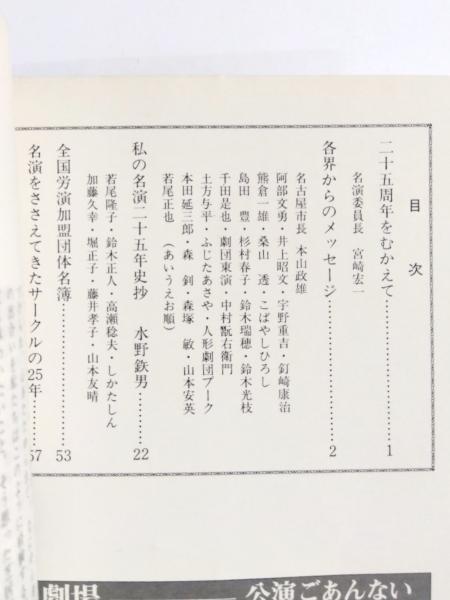 目次
二十五周年をむかえて…………1
名演委員長 宮崎宏一
各界からのメッセージ…………2
名古屋市長 本山政雄
阿部文勇・井上昭文・宇野重吉・釘崎康治
熊倉一雄・桑山 透・こばやしひろし
島田 豊・杉村春子・鈴木瑞穂・鈴木光枝
千田是也・劇団東演・中村翫右衛門
土方与平・ふじたあさや・人形劇団プーク
本田延三郎・森 釗・森塚 敏・山本安英
若尾正也 (あいうえお順)
私の名演二十五年史抄 水野鉄男…………22
若尾隆子・鈴木正人・高瀬稔夫・しかたしん
加藤久幸・堀正子・藤井孝子・山本友晴
全国労演加盟団体名簿…………53
名演をささえてきたサークルの25年…………57
劇場
公演ごあんない